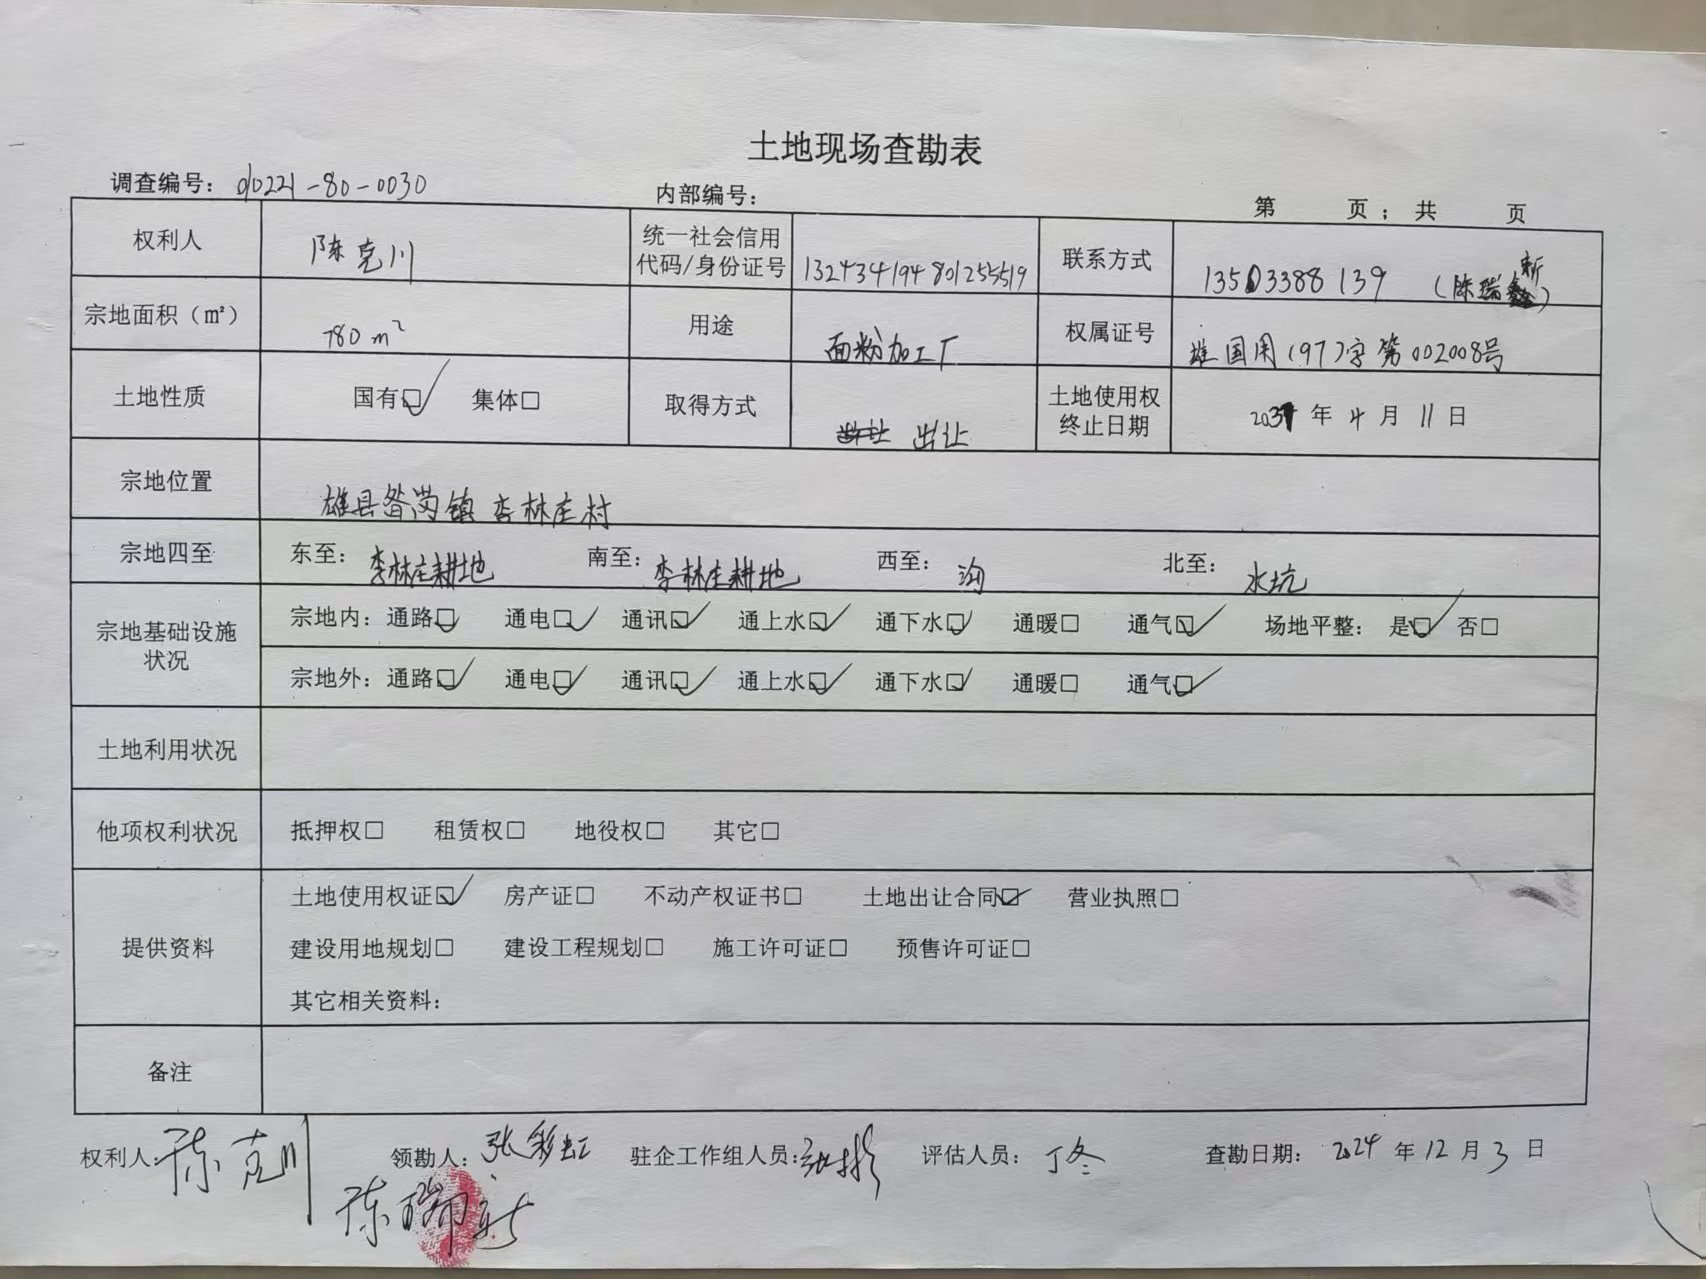 土地现场查勘表
调查编号：010221-80-0030 内部编号： 第 页；共 页
权利人 陈克川 统一社会信用代码/身份证号 132434194801255519 联系方式 13503388139 （陈瑞新）
宗地面积（㎡） 780 m² 用途 面粉加工厂 权属证号 雄国用（97）字第002008号
土地性质 国有☑ 集体□ 取得方式 出让 土地使用权终止日期 2037年4月11日
宗地位置 雄县昝岗镇李林庄村
宗地四至 东至：李林庄耕地 南至：李林庄耕地 西至：沟 北至：水坑
宗地基础设施状况 宗地内：通路☑ 通电☑ 通讯☑ 通上水☑ 通下水☑ 通暖□ 通气☑ 场地平整：是☑ 否□
宗地外：通路☑ 通电☑ 通讯☑ 通上水☑ 通下水☑ 通暖□ 通气☑
土地利用状况
他项权利状况 抵押权□ 租赁权□ 地役权□ 其它□
提供资料 土地使用权证☑ 房产证□ 不动产权证书□ 土地出让合同☑ 营业执照□
建设用地规划□ 建设工程规划□ 施工许可证□ 预售许可证□
其它相关资料：
备注
权利人：陈克川 领勘人：张彩虹 驻企工作组人员： 评估人员：丁冬 查勘日期：2024年12月3日
陈瑞新